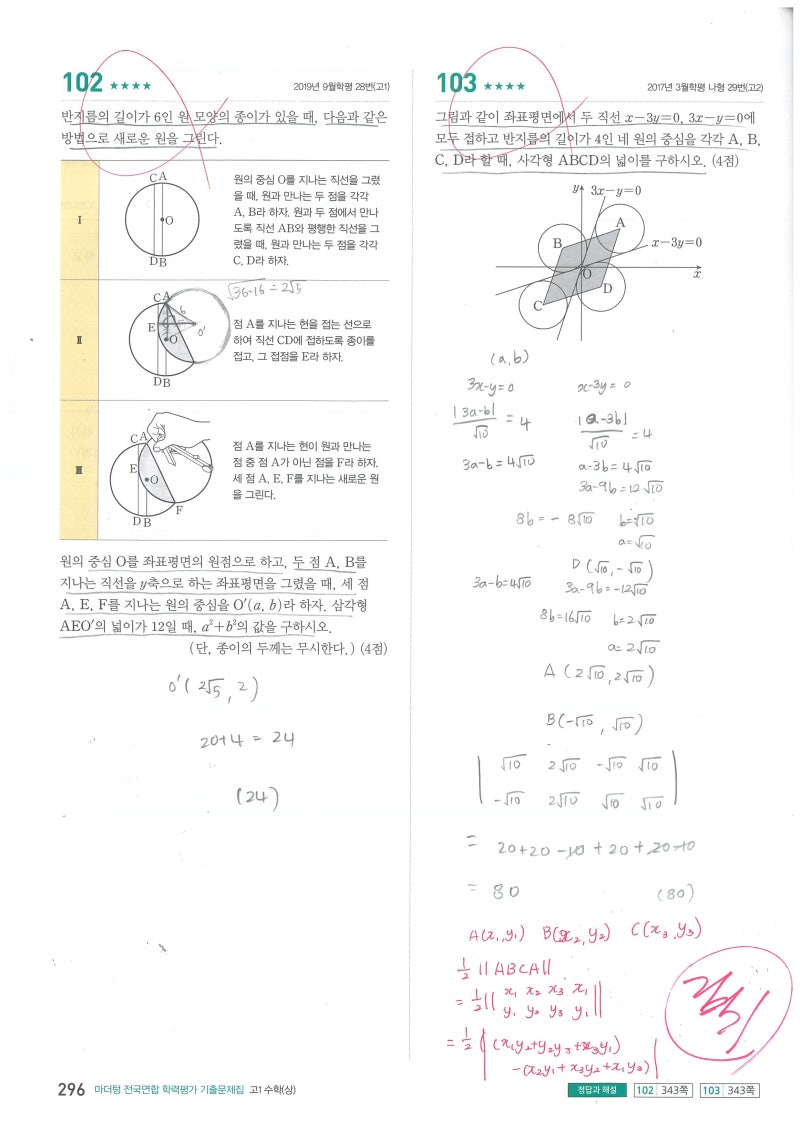 102 ★★★★
2019년 9월학평 28번(고1)
반지름의 길이가 6인 원 모양의 종이가 있을 때, 다음과 같은
방법으로 새로운 원을 그린다.
Ⅰ
C A
O
D B
원의 중심 O를 지나는 직선을 그렸
을 때, 원과 만나는 두 점을 각각
A, B라 하자. 원과 두 점에서 만나
도록 직선 AB와 평행한 직선을 그
렸을 때, 원과 만나는 두 점을 각각
C, D라 하자.
Ⅱ
√36-16 = 2√5
C A
6
E
O
O'
D B
점 A를 지나는 현을 접는 선으로
하여 직선 CD에 접하도록 종이를
접고, 그 접점을 E라 하자.
Ⅲ
C A
E
O
D B
F
점 A를 지나는 현이 원과 만나는
점 중 점 A가 아닌 점을 F라 하자.
세 점 A, E, F를 지나는 새로운 원
을 그린다.
원의 중심 O를 좌표평면의 원점으로 하고, 두 점 A, B를
지나는 직선을 y축으로 하는 좌표평면을 그렸을 때, 세 점
A, E, F를 지나는 원의 중심을 O'(a, b)라 하자. 삼각형
AEO'의 넓이가 12일 때, a²+b²의 값을 구하시오.
(단, 종이의 두께는 무시한다.) (4점)
O'(2√5, 2)
20+4 = 24
(24)
103 ★★★★
2017년 3월학평 나형 29번(고2)
그림과 같이 좌표평면에서 두 직선 x-3y=0, 3x-y=0에
모두 접하고 반지름의 길이가 4인 네 원의 중심을 각각 A, B,
C, D라 할 때, 사각형 ABCD의 넓이를 구하시오. (4점)
y 3x-y=0
A
B
x-3y=0
O
x
D
C
(a, b)
3x-y=0 x-3y=0
|3a-b|/√10 = 4 |a-3b|/√10 = 4
3a-b=4√10 a-3b=4√10
3a-9b=12√10
8b=-8√10 b=-√10
a=√10
D(√10, -√10)
3a-b=4√10 3a-9b=-12√10
8b=16√10 b=2√10
a=2√10
A(2√10, 2√10)
B(-√10, √10)
√10 2√10 -√10 √10
-√10 2√10 √10 √10
= 20+20-10+20+20-10
= 80 (80)
A(x₁,y₁) B(x₂,y₂) C(x₃,y₃)
½||ABCA||
= ½|| x₁ x₂ x₃ x₁
y₁ y₂ y₃ y₁ ||
= ½|(x₁y₂+y₂y₃+x₃y₁)
-(x₂y₁+x₃y₂+x₁y₃)|
296 마더텅 전국연합 학력평가 기출문제집 고1 수학(상)
정답과 해설 102 343쪽 103 343쪽